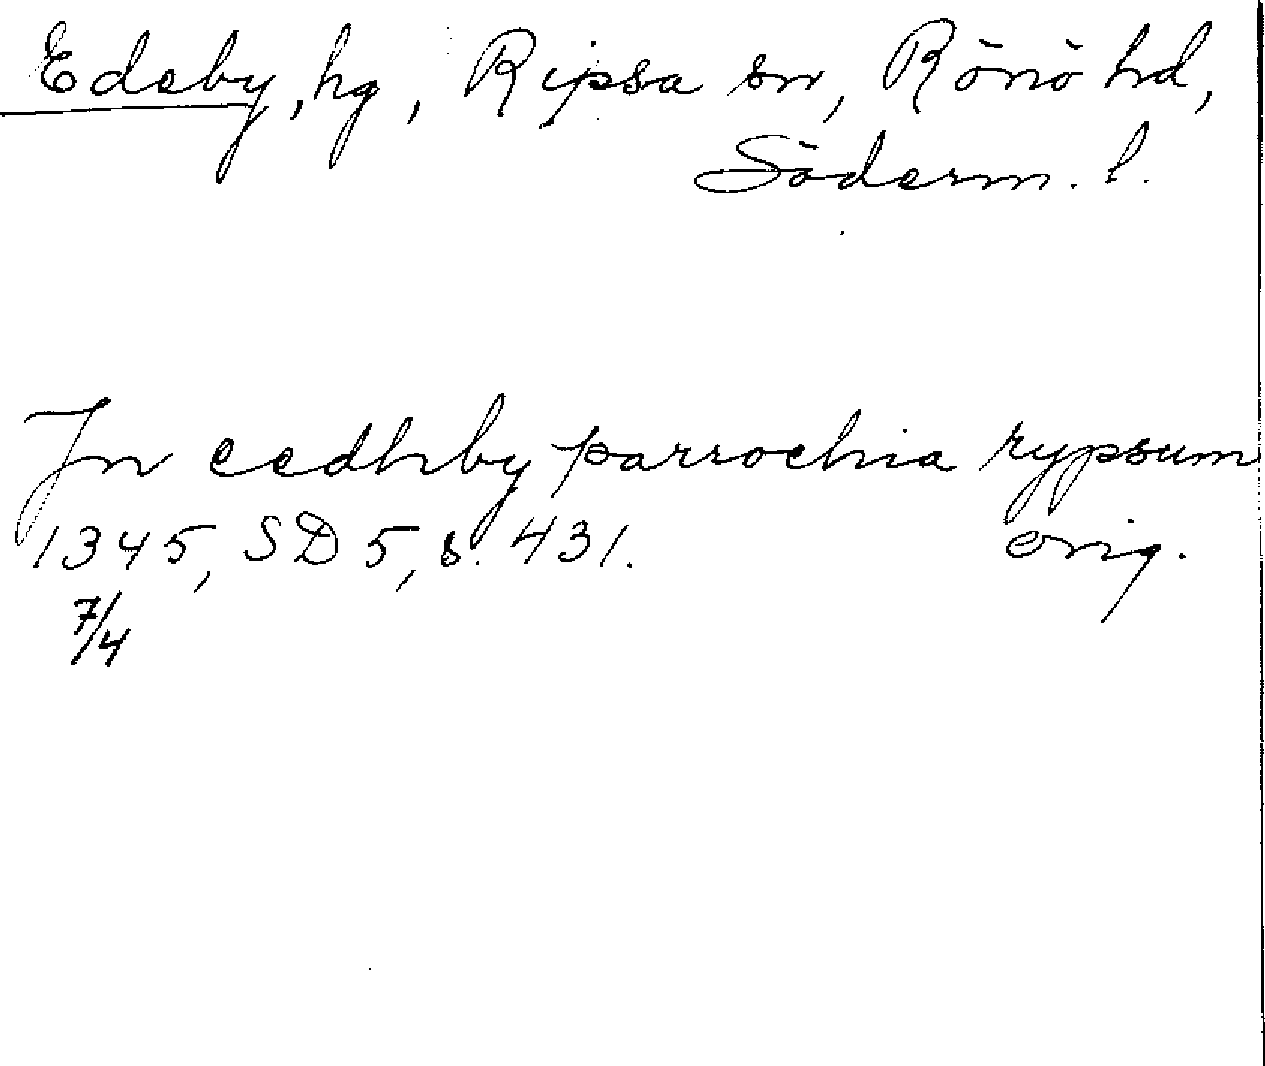 Edeby, hg, Ripsa sn, Rönö hd,
Söderm. l.
Jn eedhrby parrochia rypsum
1345, SD 5, s. 431. orig.
7/4